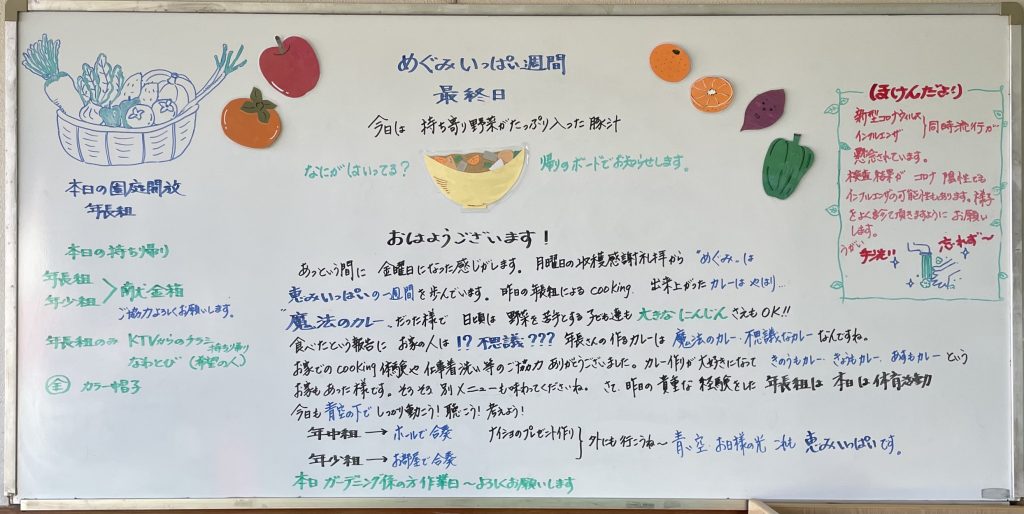 めぐみいっぱい週間
最終日
今日は 持ち寄り野菜がたっぷり入った豚汁
なにがはいってる?
帰りのボードでお知らせします。
本日の園庭開放
年長組
本日の持ち帰り
年長組
年少組
献金箱
ご協力よろしくお願いします。
年長組のみ KTVからのチラシ
持ち帰り
なわとび (希望の人)
全 カラー帽子
おはようございます!
あっという間に 金曜日になった感じがします。月曜日の収穫感謝礼拝から "めぐみ"は
恵みいっぱいの一週間を歩んでいます。昨日の年長組によるcooking 出来上がったカレーは やはり…
"魔法のカレー"だった様で 日頃は 野菜を苦手とする子ども達も 大きなにんじんさえもOK!!
食べたという報告に お家の人は !? 不思議??? 年長さんの作るカレーは 魔法のカレー・不思議なカレーなんですね。
お家でのcooking体験や仕事着洗い等のご協力ありがとうございました。カレー作りが大好きになって きのうもカレー きょうもカレー あすもカレー という
お家もあった様です。そろそろ別メニューも味わってくださいね。 さて、昨日の貴重な経験をした 年長組は 本日は体育活動
今日も 青空の下で しっかり動こう!聴こう!考えよう!
年中組 → ホールで合奏
ナイショのプレゼント作り
年少組 → お部屋で合奏
外にも行こうね〜 青い空 お日様の光 これも 恵みいっぱいです。
本日 ガーデニング係の方 作業日〜よろしくお願いします
ほけんだより
新型コロナウィルス
インフルエンザ
同時流行が
懸念されています。
検査結果が コロナ 陽性でも
インフルエンザの可能性もあります。様子
をよく診て頂きますように お願い
します。
うがい
手洗い
忘れず〜